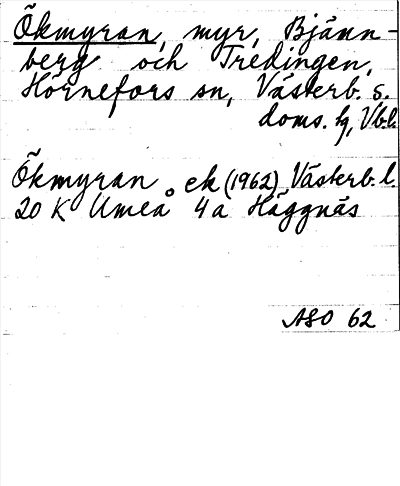 Ökmyran, myr, Bjänn-
berg och Tredingen,
Hörnefors sn, Västerb. s.
doms. hg, Vb.l.
Ökmyran ek (1962) Västerb. l.
20 K Umeå 4a Häggnäs
ASO 62